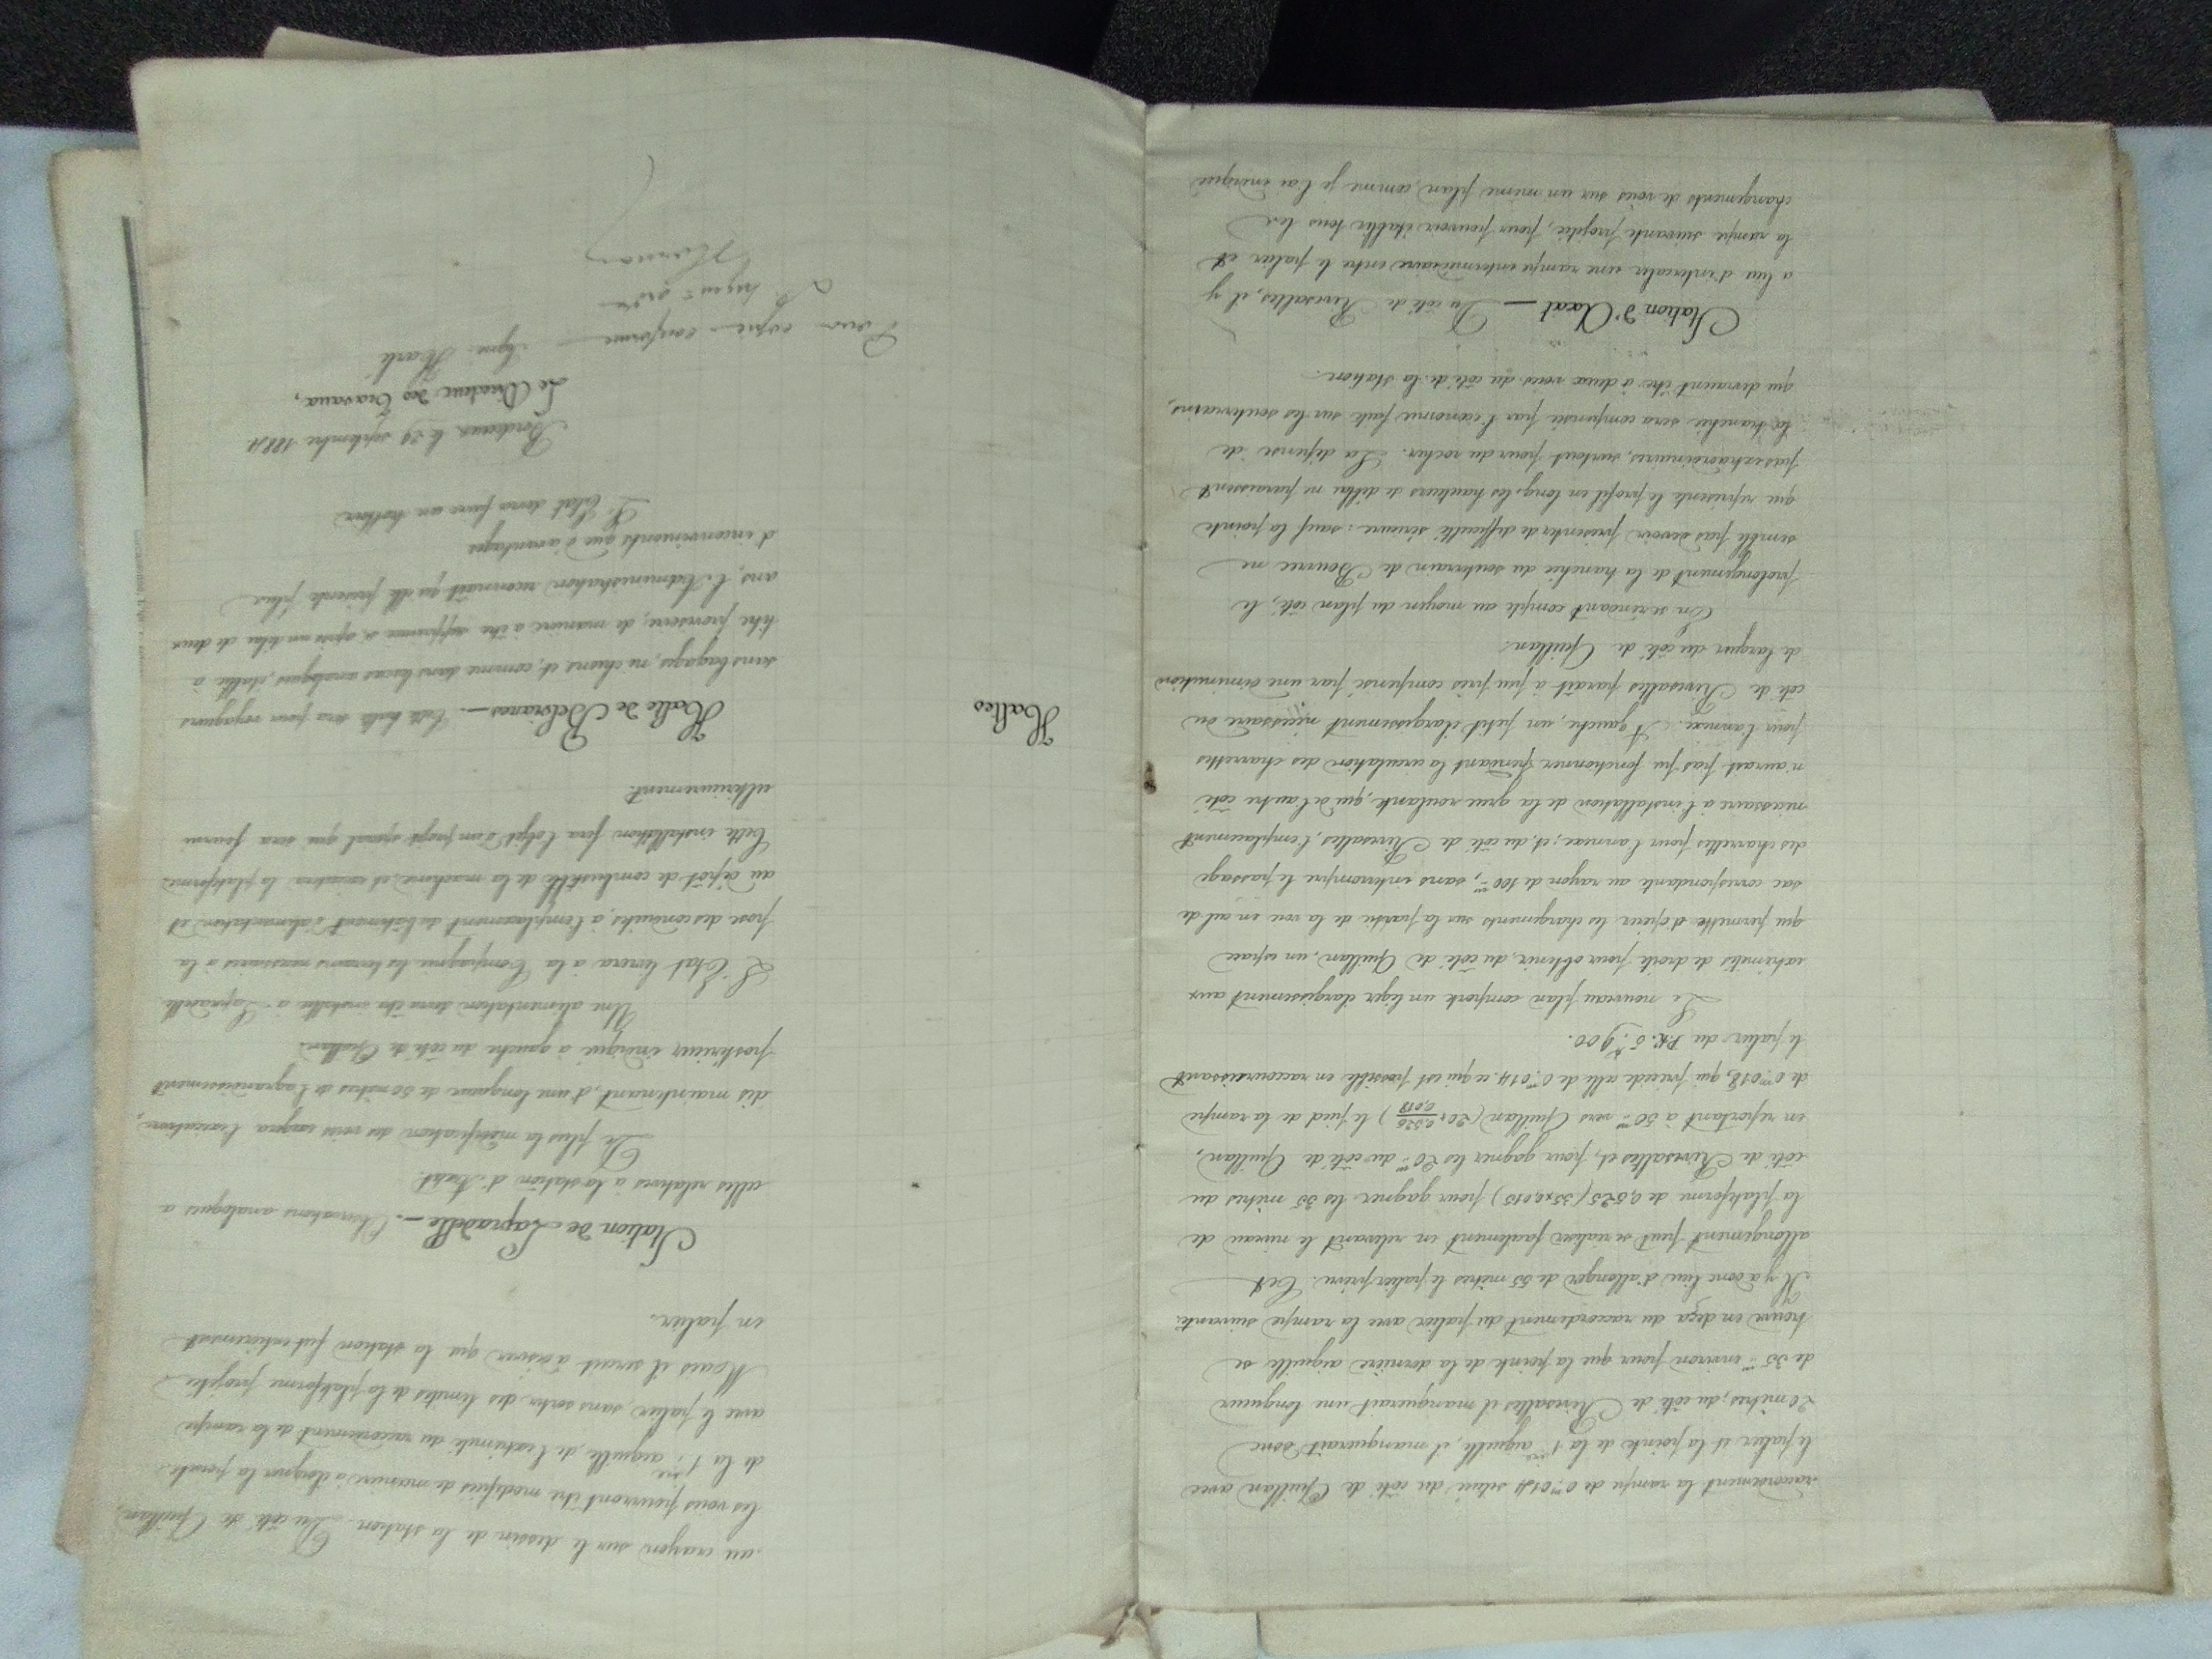 raccordement la rampe de 0m014 située du côté de Quillan avec
le palier et la pointe de la 1ère aiguille, il manquerait donc
20 mètres; du côté de Rivesaltes il manquerait une longueur
de 35m environ pour que la pointe de la dernière aiguille se
trouve en deça du raccordement du palier avec la rampe suivante.
Il y a donc lieu d'allonger de 55 mètres le palier prévu. Cet
allongement peut se réaliser facilement en relevant le niveau de
la plateforme de 0,525 (35x0,015) pour gagner les 35 mètres du
côté de Rivesaltes et, pour gagner les 20m du côté de Quillan,
en reportant à 50m vers Quillan (20+0,525/0,018) le pied de la rampe
de 0m018, qui précède celle de 0m014. ce qui est possible en raccourcissant
le palier du P.K. 5k,900.
Le nouveau plan comporte un léger élargissement aux
extrémités de droite pour obtenir, du côté de Quillan, un espace
qui permette d'opérer les chargements sur la partie de la voie en cul-de
sac correspondante au rayon de 100m, sans interrompre le passage
des charrettes pour l'annexe; et, du côté de Rivesaltes, l'emplacement
nécessaire à l'installation de la grue roulante, qui de l'autre côté
n'aurait pas pu fonctionner pendant la circulation des charrettes
pour l'annexe. A gauche, un petit élargissement nécessaire du
côté de Rivesaltes paraît à peu près compensé par une diminution
de largeur du côté de Quillan.
En se rendant compte au moyen du plan côté, le
prolongement de la tranchée du souterrain de Bourrec ne
semble pas devoir présenter de difficulté sérieure: sauf la pointe
que représente le profil en long, les hauteurs de déblai ne paraissent
pas extraordinaires, surtout pour du rocher. La dépense de
la tranchée sera compensée par l'économie faite sur les souterrains,
qui devraient être à deux voies du côté de la station.
Station d'Axat — Du côté de Rivesaltes, il y
a lieu d'intercaler une rampe intermédiaire entre le palier et
la rampe suivante projetée, pour pouvoir établir tous les
changements de voies sur un même plan, comme je l'ai indiqué
au crayon sur le dessin de la station. Du côté de Quillan,
les voies pourront être modifiées de manière à éloigner la pointe
de la 1ère aiguille, de l'extrémité du raccordement de la rampe
avec le palier, sans sortir des limites de la plateforme projetée.
Mais il serait à désirer que la station fut entièrement
en palier.
Station de Lapradelle —. Observations analogues a
celles relatives à la station d'Axat.
De plus la modification des voies exigera l'exécution,
dès maintenant, d'une longueur de 50 mètres de l'agrandissement
postérieur indiqué à gauche du côté de Quillan.
Une alimentation devra être installée à Lapradelle
L'Etat livrera à la Compagnie les terrains nécessaires à la
pose des conduites, à l'emplacement du bâtiment d'alimentation et
au dépôt de combustible de la machine, et exécutera la plateforme.
Cette installation fera l'objet d'un projet spécial qui sera fourni
ultérieurement.
Haltes
Halte de Belvianes —. Cette halte sera pour voyageurs
sans bagages, ni chiens, et, comme dans les cas analogues, établie à
titre provisoire, de manière à être supprimée si, après un délai de deux
ans, l'Administration reconnaît qu'elle présente plus
d'inconvénients que d'avantages
L'Etat devra faire un trottoir
Bordeaux, le 29 septembre 1884.
Le Directeur des Travaux,
Signé: Harlé
Pour copie conforme